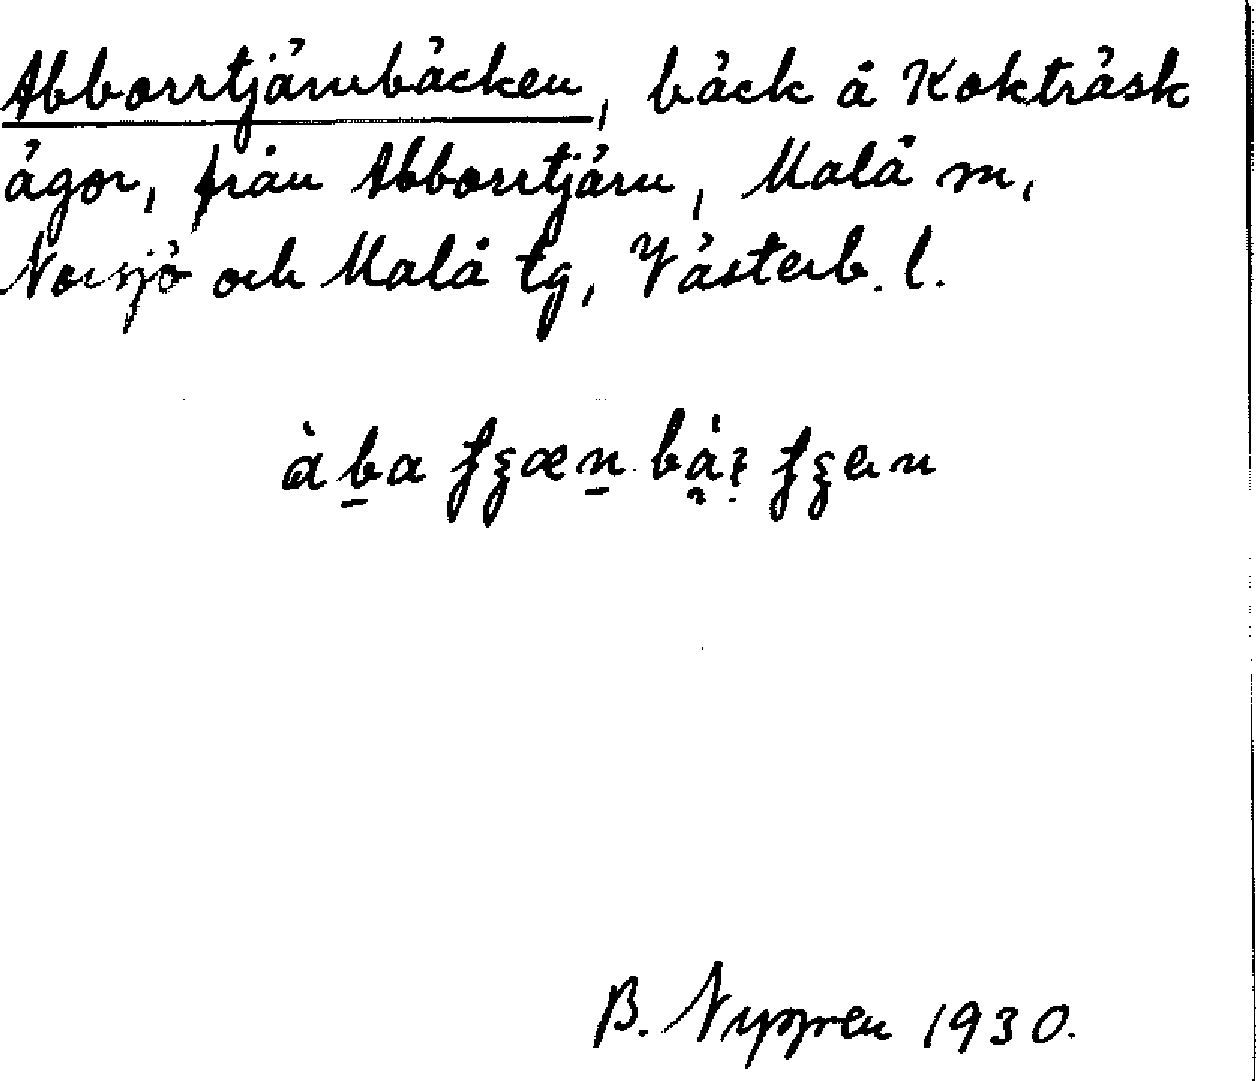 Abborrtjärnbäcken, bäck å Kokträsk
ägor, från Abborrtjärn, Malå sn,
Norsjö och Malå tg, Västerb. l.
B. Nygren 1930.